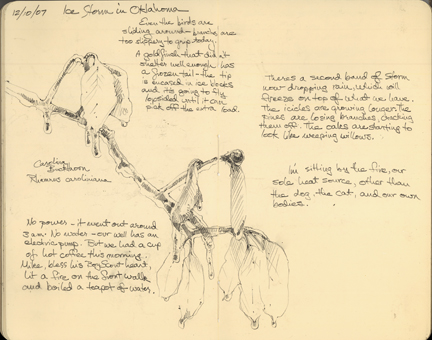 12/10/07 Ice Storm in Oklahoma
Even the birds are
sliding around - branches are
too slippery to grip today.
A goldfinch that didn't
shelter well enough has
a frozen tail - the tip
is encased in ice blocks
and it's going to fly
lopsided until it can
shake off the extra load.
There's a second band of storm
now dropping rain, which will
freeze on top of what we have.
The icicles are growing longer. The
pines are losing branches, cracking
them off. The oaks are starting to
look like weeping willows.
Carolina
Buckthorn
Rhamnus caroliniana
I'm sitting by the fire, our
sole heat source, other than
the dog, the cat, and our own
bodies.
No power - it went out around
3 am. No water - our well has an
electric pump. But we had a cup
of hot coffee this morning.
Mike, bless his Boy Scout heart,
lit a fire on the front walk
and boiled a teapot of water.